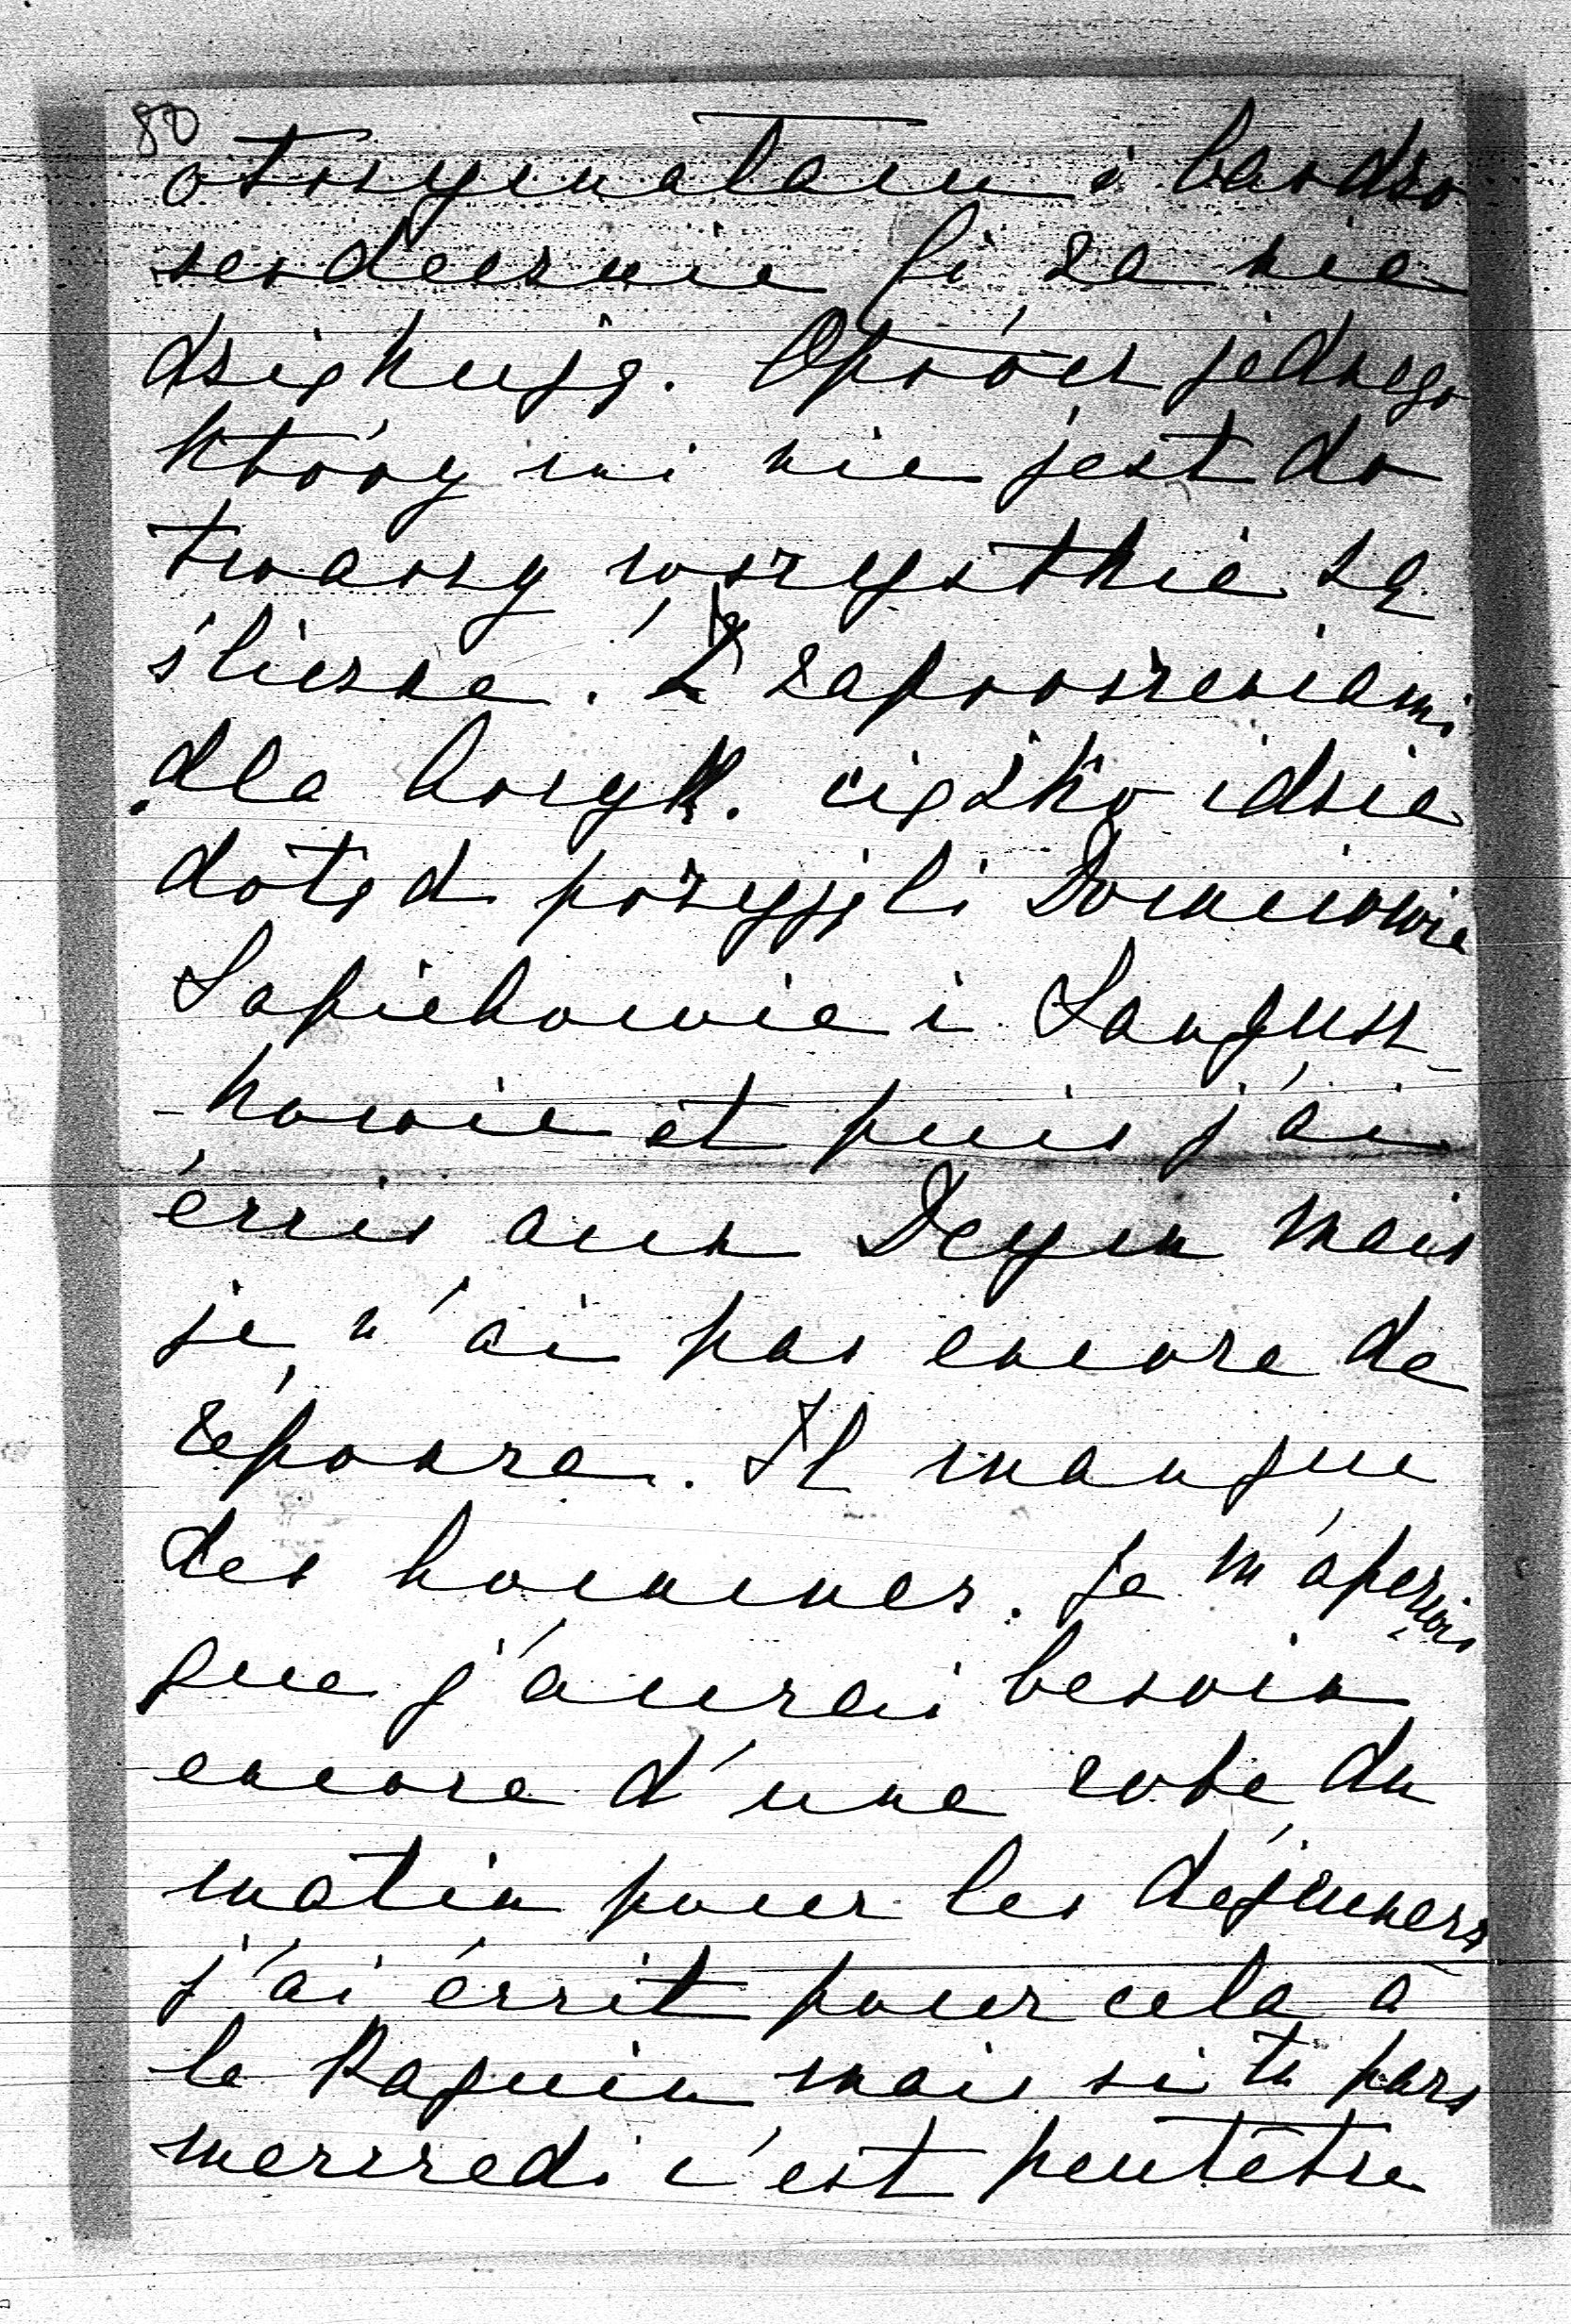 80
otrzymałam i bardzo
serdecznie Ci za nie
dziękuję. Oprócz jednego
który mi nie jest do
twarzy wszystkie są
śliczne. Z zaproszeniami
dla Krzyk. ciężko idzie
dotąd przyjęli
Sapiehowie i Sangusz-
-kowie et puis j'ai
écris aux Deym mais
je n'ai pas encore de
réponse. Il manque
des hommes. Je m'aperçois
que j'aurai besoin
encore d'une robe du
matin pour les déjeuners
j'ai écrit pour cela à
la Raguin mais si tu pars
mercredi c'est peutêtre